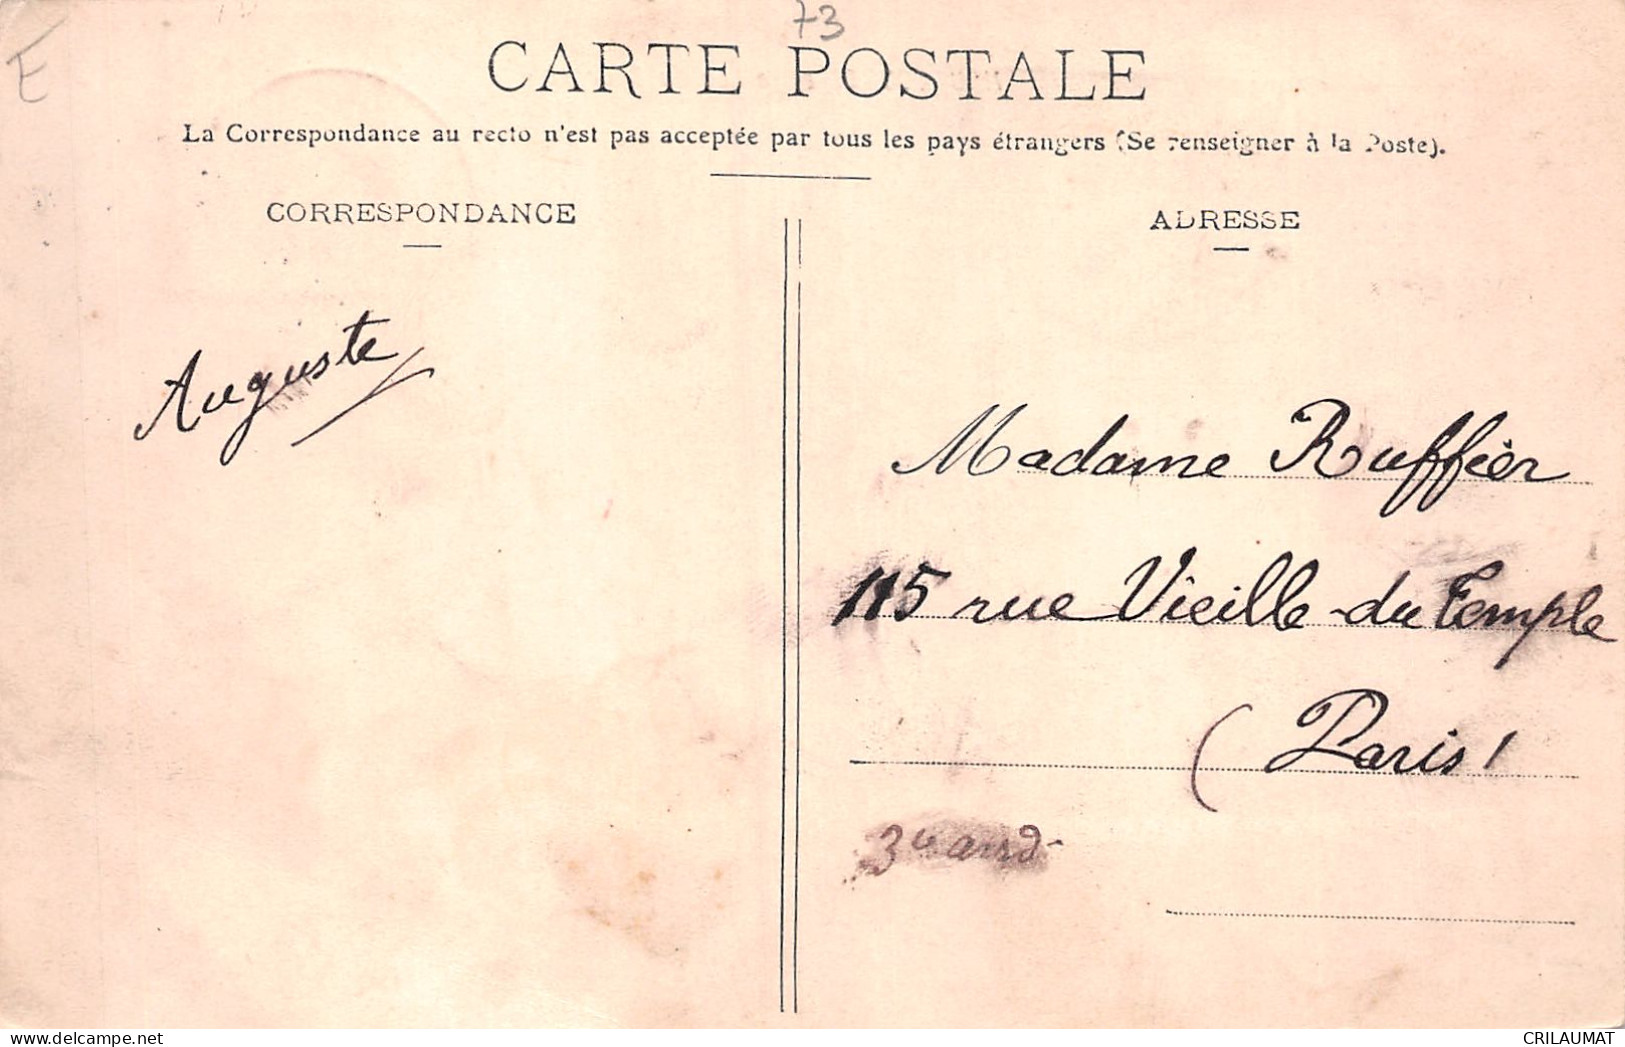 73
E
CARTE POSTALE
La Correspondance au recto n'est pas acceptée par tous les pays étrangers (Se renseigner à la Poste).
CORRESPONDANCE
ADRESSE
Auguste
Madame Ruffier
115 rue Vieille-du Temple
(Paris)
3e arrd-
CRILAUMAT